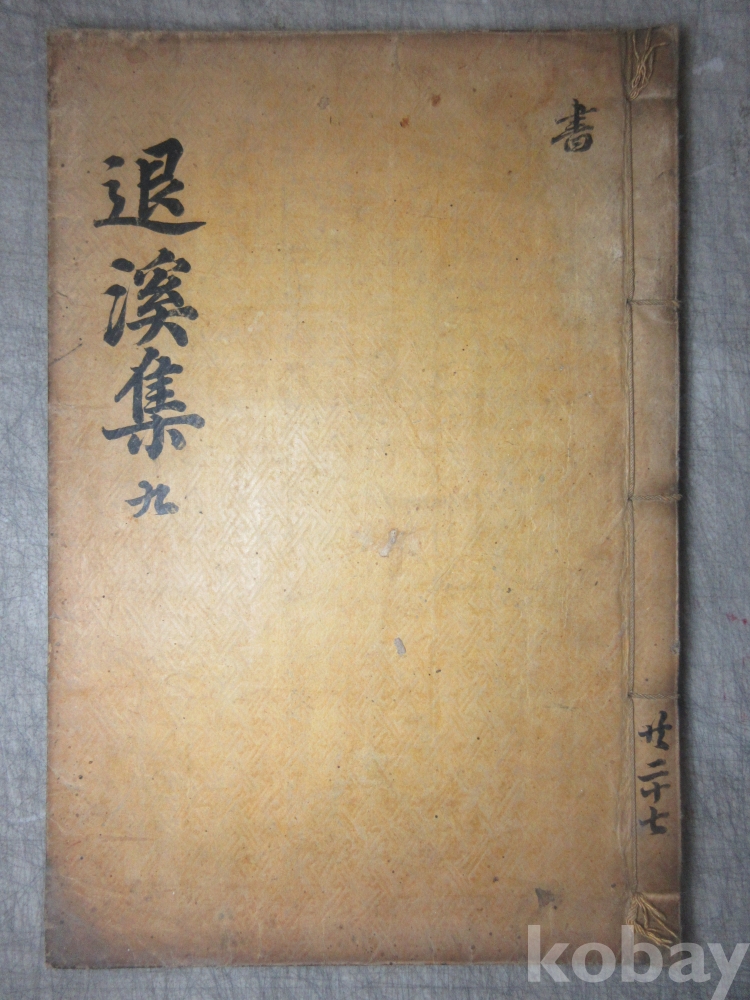 書
退溪集 九
共二十七
kobay